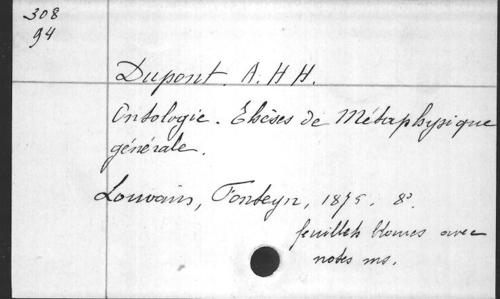 308
94
Dupont. A. H H.
Ontologie. Thèses de Métaphysique
générale.
Louvain, Fonteyn, 1875. 8°.
feuillets blancs avec
notes ms.